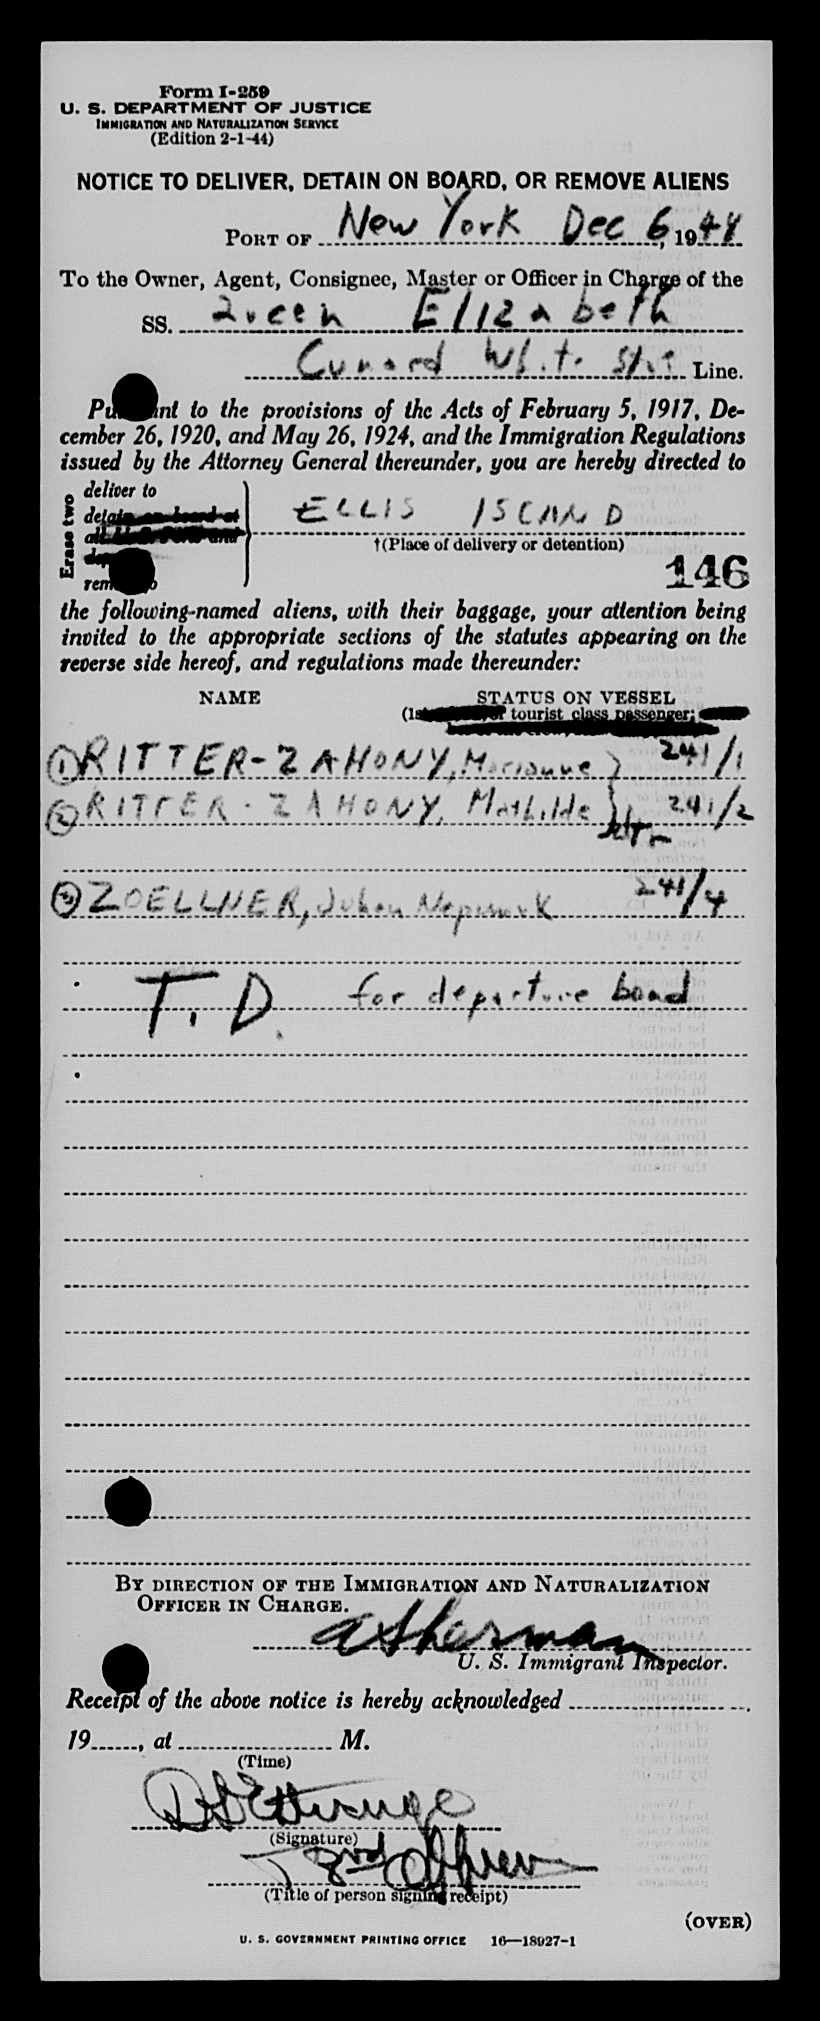 Form I-259
U. S. DEPARTMENT OF JUSTICE
IMMIGRATION AND NATURALIZATION SERVICE
(Edition 2-1-44)
NOTICE TO DELIVER, DETAIN ON BOARD, OR REMOVE ALIENS
PORT OF New York Dec 6, 19
To the Owner, Agent, Consignee, Master or Officer in Charge of the
SS. Queen Elizabeth
Cunard White Star Line.
to the provisions of the Acts of February 5, 1917, De-
cember 26, 1920, and May 26, 1924, and the Immigration Regulations
issued by the Attorney General thereunder, you are hereby directed to
Erase two
deliver to
ELLIS ISLAND
†(Place of delivery or detention)
146
the following-named aliens, with their baggage, your attention being
invited to the appropriate sections of the statutes appearing on the
reverse side hereof, and regulations made thereunder:
NAME STATUS ON VESSEL
tourist class passenger;
① RITTER-ZAHONY, Marianne } 241/1
② RITTER-ZAHONY, Mathilde } 241/2
③ ZOELLNER, Johan Nepomuk 241/4
T. D. for departure board
BY DIRECTION OF THE IMMIGRATION AND NATURALIZATION
OFFICER IN CHARGE.
U. S. Immigrant Inspector.
Receipt of the above notice is hereby acknowledged
19, at M.
(Time)
(Signature)
(Title of person signing receipt)
(OVER)
U. S. GOVERNMENT PRINTING OFFICE 16—18927-1